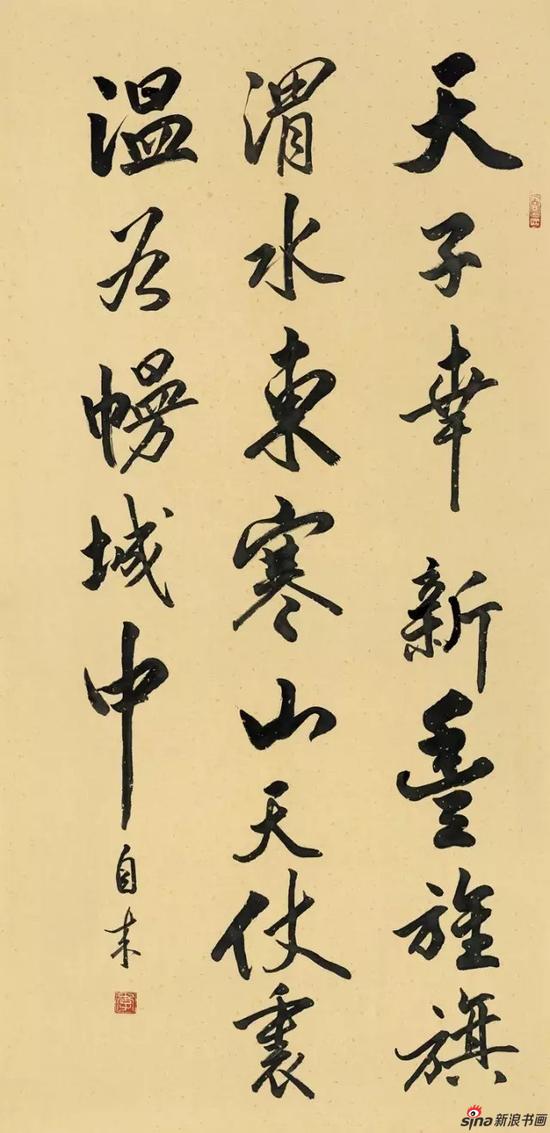 天子幸新豐旌旗
渭水東寒山天仗裏
温谷幔城中
自来
sina新浪书画